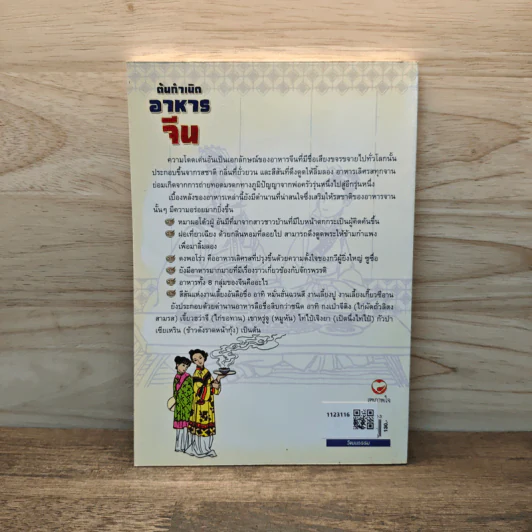 ต้นกำเนิด
อาหาร
จีน
ความโดดเด่นอันเป็นเอกลักษณ์ของอาหารจีนที่มีชื่อเสียงขจรขจายไปทั่วโลกนั้น
ประกอบขึ้นจากรสชาติ กลิ่นที่ยั่วยวน และสีสันที่ดึงดูดให้ลิ้มลอง อาหารเลิศรสทุกจาน
ย่อมเกิดจากการถ่ายทอดมรดกทางภูมิปัญญาจากพ่อครัวรุ่นหนึ่งไปสู่อีกรุ่นหนึ่ง
เบื้องหลังของอาหารเหล่านี้ยังมีตำนานที่น่าสนใจซึ่งเสริมให้รสชาติของอาหารจาน
นั้นๆ มีความอร่อยมากยิ่งขึ้น
หมาผอโต้วฝู่ อันมีที่มาจากสาวชาวบ้านที่มีใบหน้าตกกระเป็นผู้คิดค้นขึ้น
ฝอเที่ยวเฉียง ด้วยกลิ่นหอมที่ลอยไป สามารถดึงดูดพระให้ข้ามกำแพง
เพื่อมาลิ้มลอง
ตงพอโร่ว คืออาหารเลิศรสที่ปรุงขึ้นด้วยความตั้งใจของกวีผู้ยิ่งใหญ่ ซูซื่อ
ยังมีอาหารมากมายที่มีเรื่องราวเกี่ยวข้องกับจักรพรรดิ
อาหารทั้ง 8 กลุ่มของจีนคืออะไร
สีสันแห่งงานเลี้ยงอันลือชื่อ อาทิ หม่านฮั่นฉวนสี งานเลี้ยงปู งานเลี้ยงเกี๊ยวซีอาน
ยังประกอบด้วยตำนานอาหารลือชื่อสิบกว่าชนิด อาทิ กงเป่าจีติง (ไก่ผัดถั่วลิสง
สามรส) เจี้ยวฮวาจี (ไก่ขอทาน) เชาหรู่จู (หมูหัน) ไท่ไป๋เจิงยา (เป็ดนึ่งไท่ไป๋) กัวปา
เซียเหริน (ข้าวตังราดหน้ากุ้ง) เป็นต้น
สุขภาพใจ
1123116
130.-
วัฒนธรรม